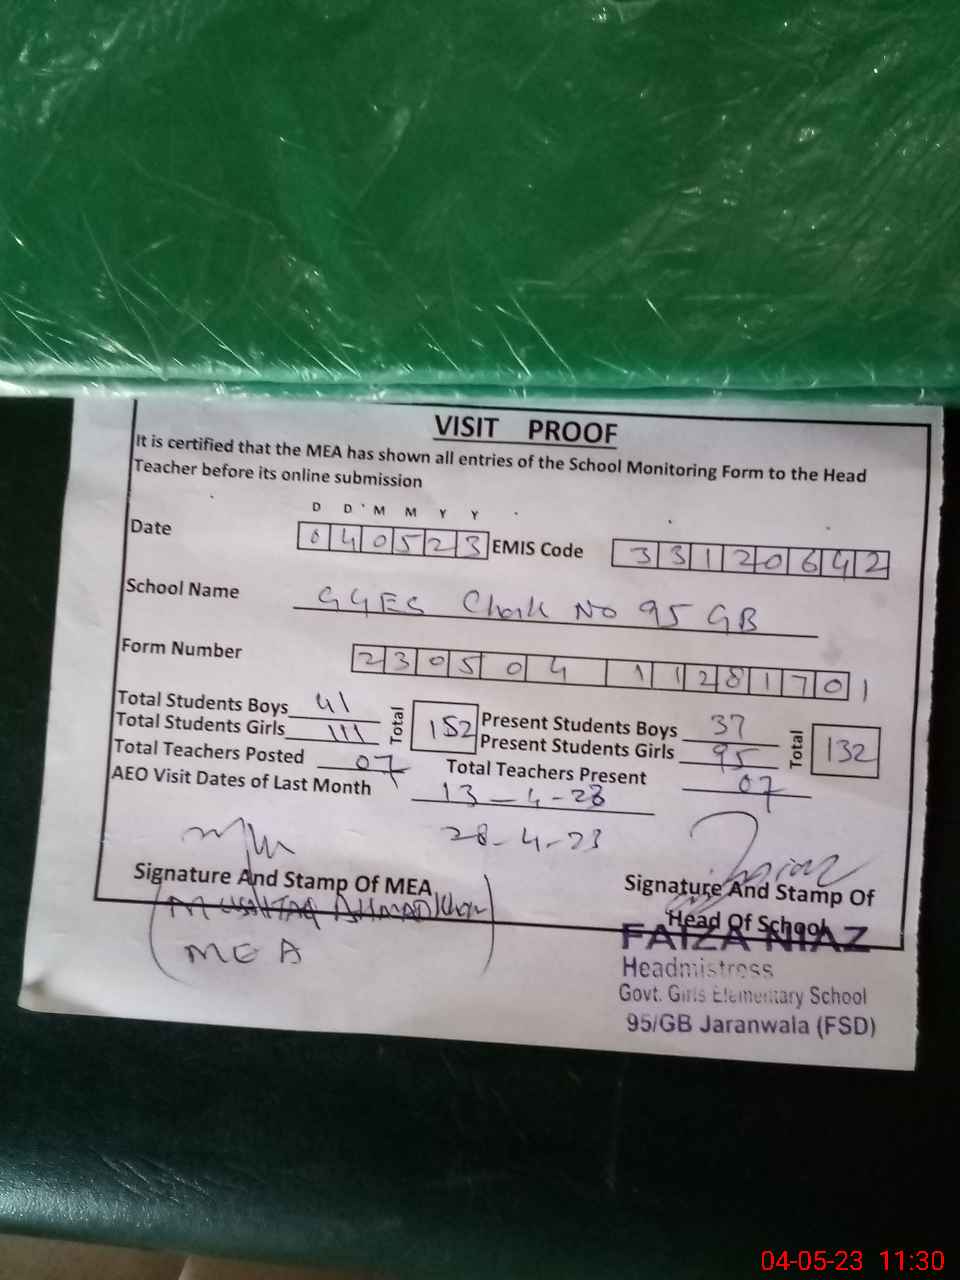 VISIT PROOF
It is certified that the MEA has shown all entries of the School Monitoring Form to the Head
Teacher before its online submission
D D M M Y Y
Date 040523 EMIS Code 33120642
School Name GGES Chak No 95 GB
Form Number 230504 11281701
Total Students Boys 41 Total 152 Present Students Boys 37 Total 132
Total Students Girls 111 Present Students Girls 95
Total Teachers Posted 07 Total Teachers Present 07
AEO Visit Dates of Last Month 13-4-23
28-4-23
Signature And Stamp Of MEA
Signature And Stamp Of
Head Of School
(MUSHTAQ AHMAD Khan
MEA)
FAIZA NIAZ
Headmistress
Govt. Girls Elementary School
95/GB Jaranwala (FSD)
04-05-23 11:30